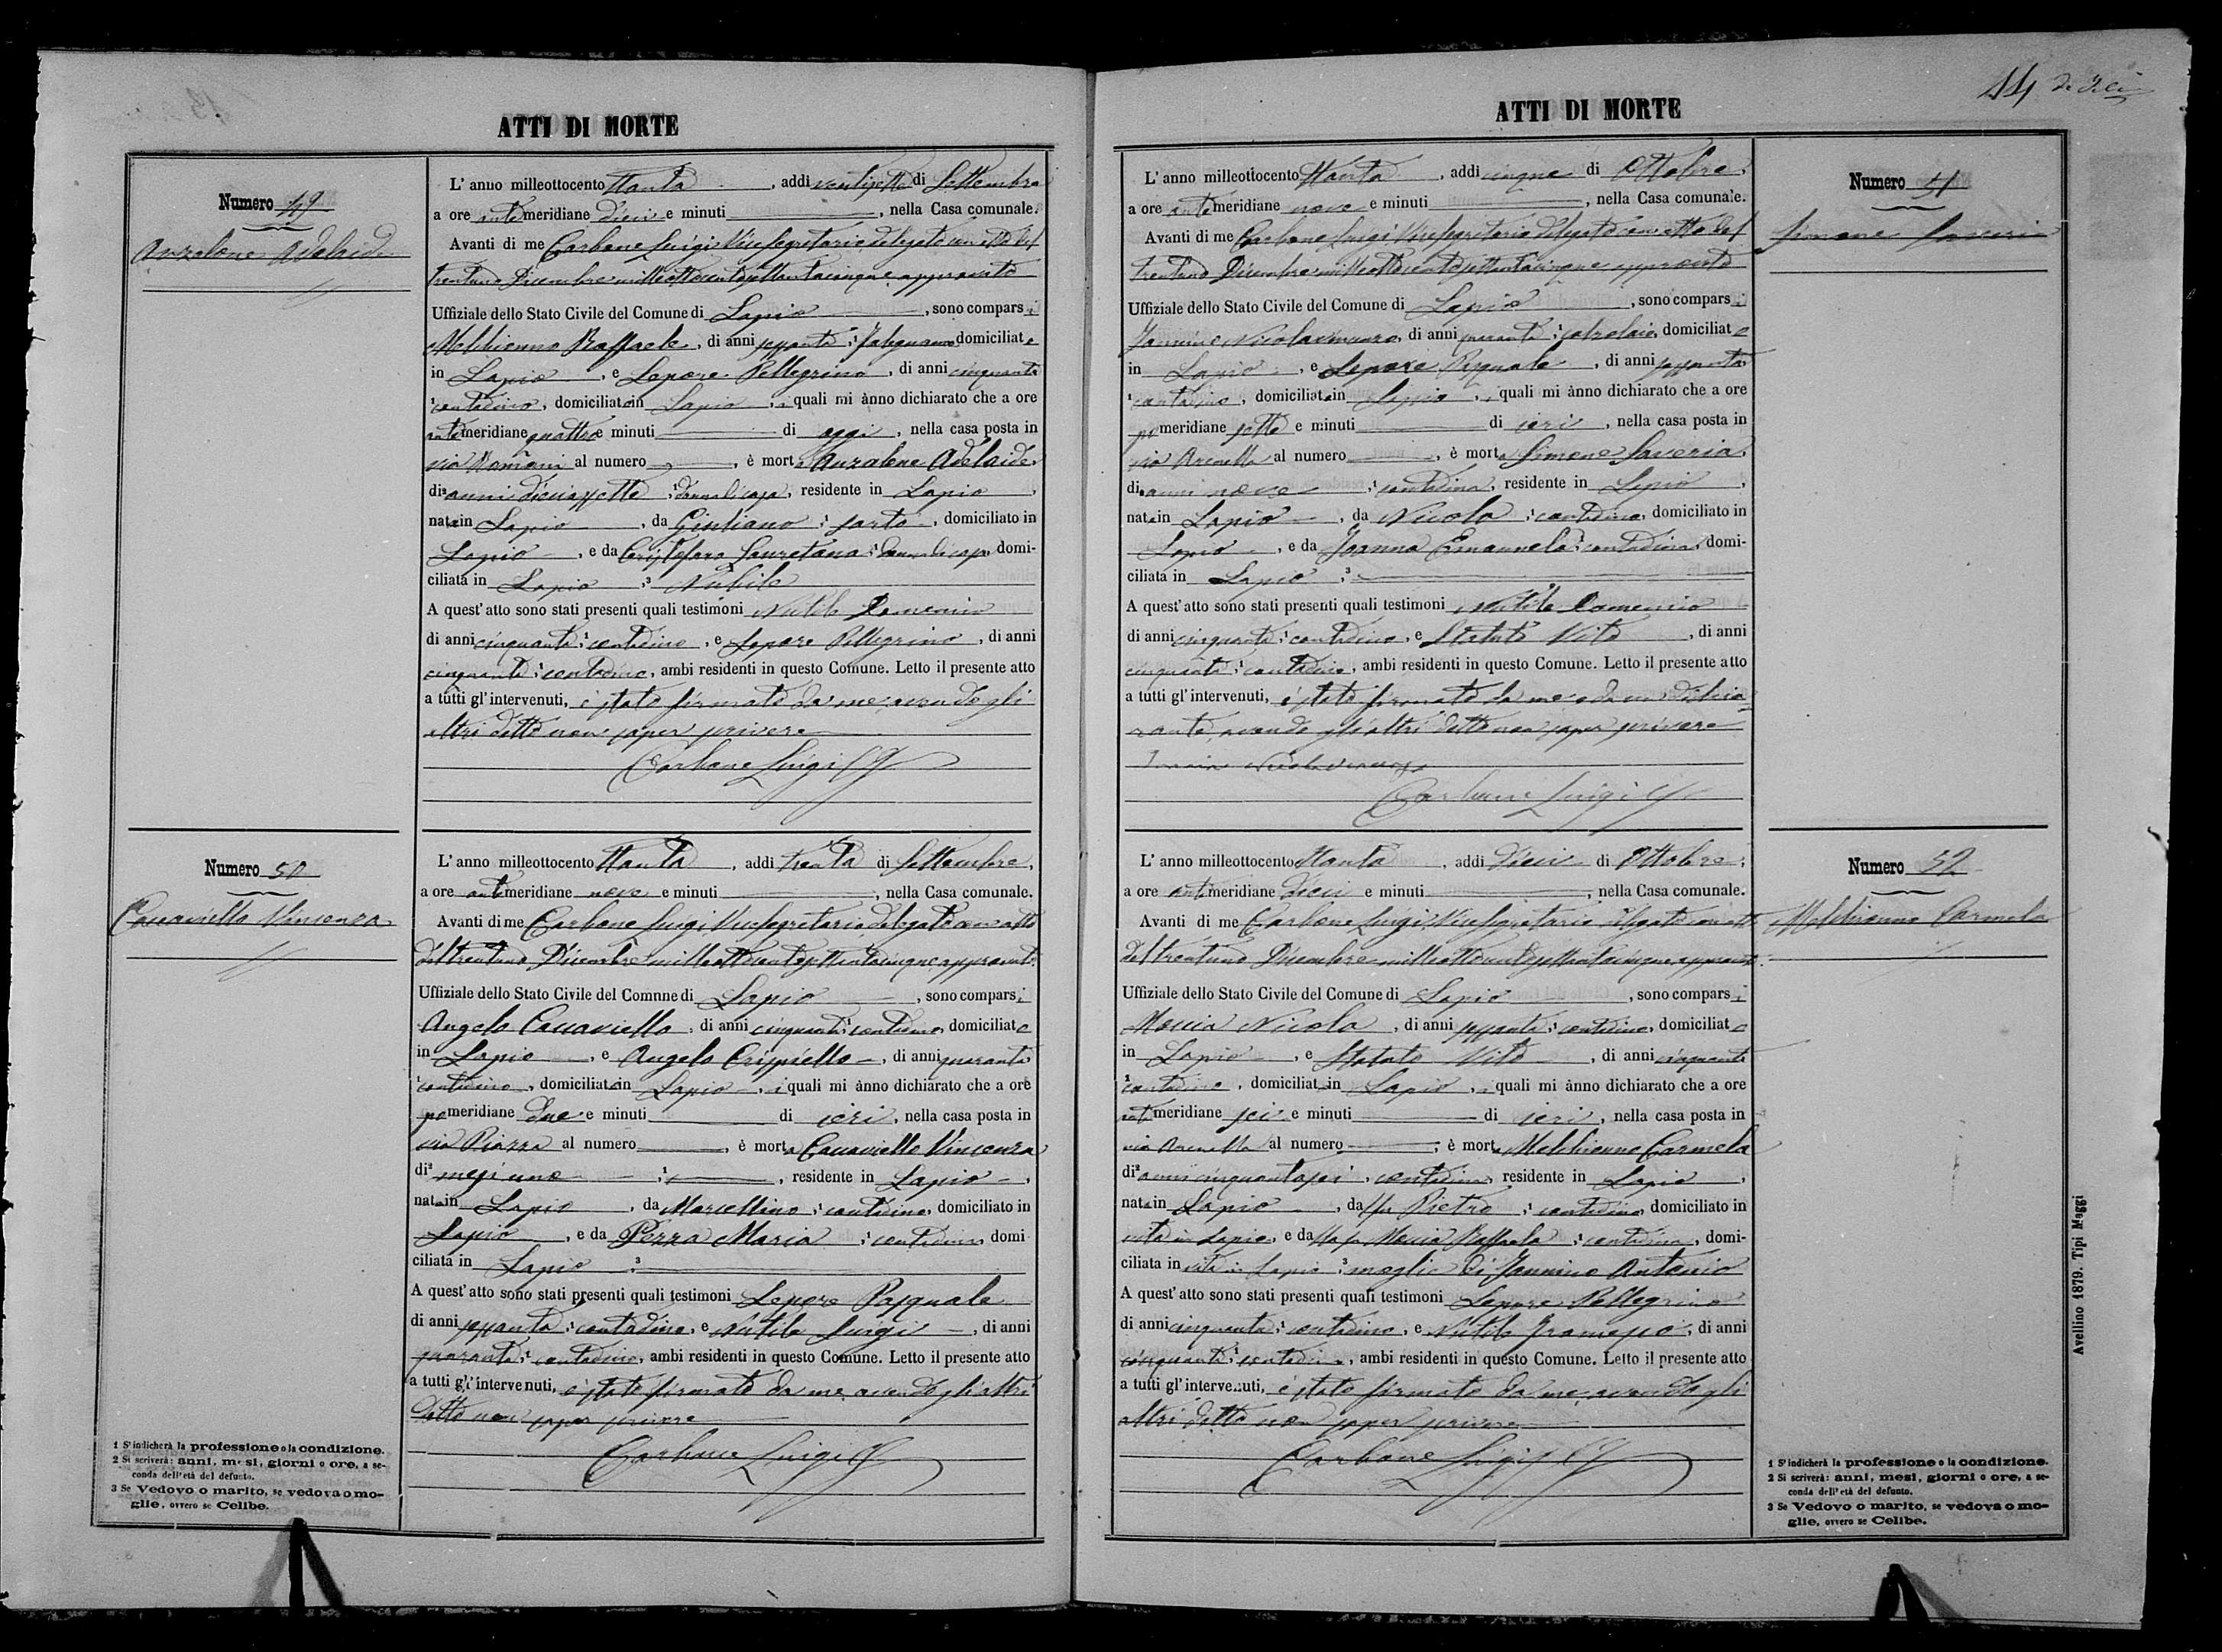 ATTI DI MORTE
Numero 49
Anzalone Adelaide
L' anno milleottocento ttanta , addi ventisette di Settembre
a ore antimeridiane dieci e minuti , nella Casa comunale.
Avanti di me Carbone Luigi Vice Segretario delegato con atto del
trentuno Dicembre milleottocentosettantacinque approvato
Uffiziale dello Stato Civile del Comune di Lapio , sono compars i
Melchionno Raffaele , di anni sessanta ; 1 falegname domiciliat o
in Lapio , e Lepore Pellegrino , di anni cinquanta
1 contadino , domiciliato in Lapio , i quali mi ànno dichiarato che a ore
antimeridiane quattro e minuti di oggi , nella casa posta in
via Romani al numero , è morta Anzalone Adelaide
di 2 anni diciassette ; 1 donna di casa , residente in Lapio ,
nata in Lapio , da Giuliano ; 1 sarto , domiciliato in
Lapio , e da Cristofaro Lauretana ; 1 donna di casa domi-
ciliata in Lapio ; 3 Nubile
A quest' atto sono stati presenti quali testimoni Nutile Domenico
di anni cinquanta ; 1 contadino , e Lepore Pellegrino , di anni
cinquanta ; 1 contadino , ambi residenti in questo Comune. Letto il presente atto
a tutti gl' intervenuti, è stato firmato da me avendo gli
altri detto non saper scrivere
Carbone Luigi
Numero 50
Caccaviello Vincenza
L' anno milleottocento ttanta , addi trenta di Settembre ,
a ore antimeridiane nove e minuti , nella Casa comunale.
Avanti di me Carbone Luigi Vice Segretario delegato con atto
del trentuno Dicembre milleottocentosettantacinque approvato
Uffiziale dello Stato Civile del Comnne di Lapio , sono compars i
Angelo Caccaviello , di anni cinquanta ; 1 contadino domiciliat o
in Lapio , e Angelo Crispiello , di anni quaranta
1 contadino , domiciliato in Lapio , i quali mi ànno dichiarato che a ore
pomeridiane due e minuti di ieri , nella casa posta in
via Piazza al numero , è morta Caccaviello Vincenza
di 2 mesi uno ; 1 , residente in Lapio ,
nata in Lapio , da Marcellino ; 1 contadino , domiciliato in
Lapio , e da Pezza Maria ; 1 contadina domi
ciliata in Lapio ; 3
A quest' atto sono stati presenti quali testimoni Lepore Pasquale
di anni sessanta ; 1 contadino , e Nutile Luigi , di anni
quaranta ; 1 contadino , ambi residenti in questo Comune. Letto il presente atto
a tutti gl' intervenuti, è stato firmato da me avendo gli altri
detto non saper scrivere
Carbone Luigi
1 S' indicherà la professione o la condizione.
2 Si scriverà: anni, mesi, giorni o ore, a se-
conda dell' età del defunto.
3 Se Vedovo o marito, se vedova o mo-
glie, ovvero se Celibe.
14
ATTI DI MORTE
Numero 51
Simone Saveria
L' anno milleottocento ttanta , addi cinque di Ottobre
a ore antimeridiane nove e minuti , nella Casa comunale.
Avanti di me Carbone Luigi Vice Segretario delegato con atto del
trentuno Dicembre milleottocentosettantacinque approvato
Uffiziale dello Stato Civile del Comune di Lapio , sono compars i
Jannino Nicolavincenzo , di anni quaranta ; 1 calzolaio domiciliat o
in Lapio , e Lepore Pasquale , di anni sessanta
1 contadino , domiciliato in Lapio , i quali mi ànno dichiarato che a ore
pomeridiane sette e minuti di ieri , nella casa posta in
via al numero , è morta Simone Saveria
di 2 anni nove ; 1 contadina , residente in Lapio ,
nata in Lapio , da Nicola ; 1 contadino , domiciliato in
Lapio , e da Joanna Emanuela ; 1 contadina , domi-
ciliata in Lapio ; 3
A quest' atto sono stati presenti quali testimoni Nutile Domenico
di anni cinquanta ; 1 contadino , e Statuto Vito , di anni
cinquanta ; 1 contadino , ambi residenti in questo Comune. Letto il presente atto
a tutti gl' intervenuti, è stato firmato da me e da un dichia-
rante, avendo gli altri detto non saper scrivere
Carbone Luigi
Numero 52
Melchionno Carmela
L' anno milleottocento ttanta , addi dieci di Ottobre ,
a ore antimeridiane dieci e minuti , nella Casa comunale.
Avanti di me Carbone Luigi Vice Segretario delegato con atto
del trentuno Dicembre milleottocentosettantacinque approvato
Uffiziale dello Stato Civile del Comune di Lapio , sono compars i
Moccia Nicola , di anni sessanta ; 1 contadino , domiciliat o
in Lapio , e Statuto Vito , di anni cinquanta
1 contadino , domiciliato in Lapio , i quali mi ànno dichiarato che a ore
antimeridiane sei e minuti di ieri , nella casa posta in
via al numero , è morta Melchionno Carmela
di 2 anni cinquantasei , contadina residente in Lapio ,
nata in Lapio , da fu Pietro ; 1 contadino domiciliato in
vita in Lapio , e dalla fu Moccia Raffaela ; 1 contadina , domi-
ciliata in vita in Lapio ; 3 moglie di Jannino Antonio
A quest' atto sono stati presenti quali testimoni Lepore Pellegrino
di anni cinquanta ; 1 contadino , e Nutile Francesco , di anni
cinquanta ; 1 contadino , ambi residenti in questo Comune. Letto il presente atto
a tutti gl' intervenuti, è stato firmato da me avendo gli
altri detto non saper scrivere
Carbone Luigi
1 S' indicherà la professione o la condizione.
2 Si scriverà: anni, mesi, giorni o ore, a se-
conda dell' età del defunto.
3 Se Vedovo o marito, se vedova o mo-
glie, ovvero se Celibe.
Avellino 1879. Tipi Maggi